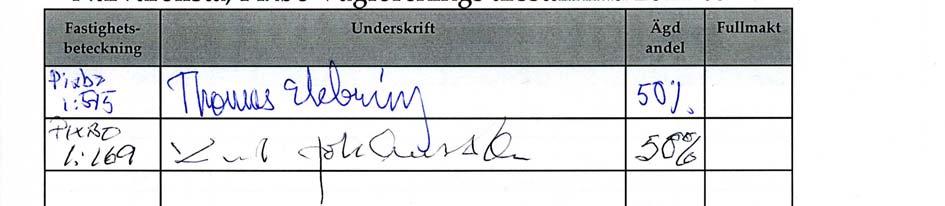 Fastighets-
beteckning
Underskrift
Ägd
andel
Fullmakt
Pixbo
1:515
Thomas Ekebring
50%
PIXBO
1:169
Johansson
50%